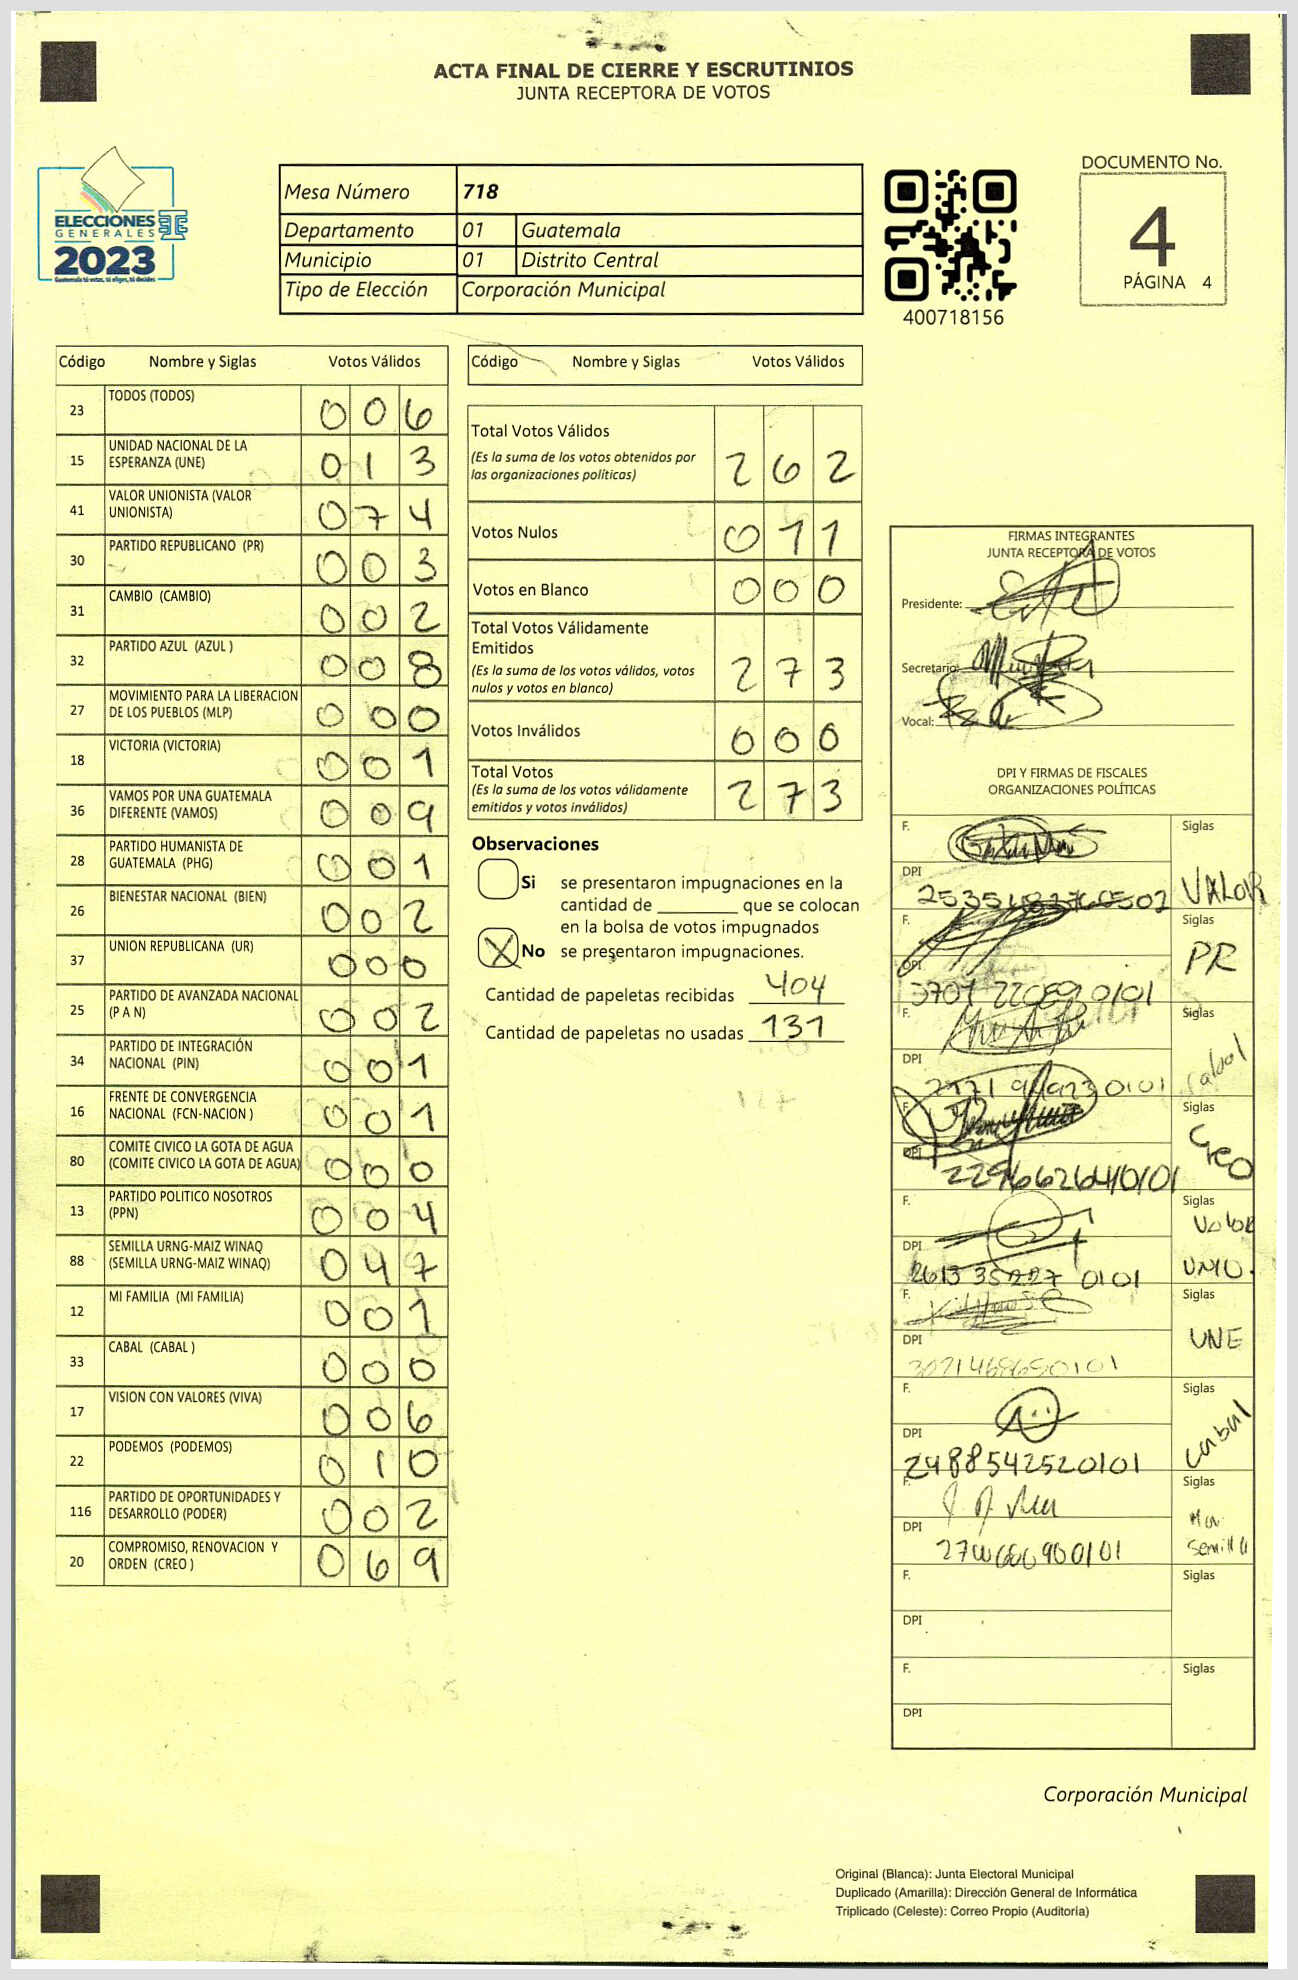 ACTA FINAL DE CIERRE Y ESCRUTINIOS
JUNTA RECEPTORA DE VOTOS
ELECCIONES
GENERALES
2023
Guatemala tú votas, tú eliges, tú decides
Mesa Número 718
Departamento 01 Guatemala
Municipio 01 Distrito Central
Tipo de Elección Corporación Municipal
400718156
DOCUMENTO No.
4
PÁGINA 4
Código Nombre y Siglas Votos Válidos
23 TODOS (TODOS) 0 0 6
15 UNIDAD NACIONAL DE LA
ESPERANZA (UNE) 0 1 3
41 VALOR UNIONISTA (VALOR
UNIONISTA) 0 7 4
30 PARTIDO REPUBLICANO (PR) 0 0 3
31 CAMBIO (CAMBIO) 0 0 2
32 PARTIDO AZUL (AZUL ) 0 0 8
27 MOVIMIENTO PARA LA LIBERACION
DE LOS PUEBLOS (MLP) 0 0 0
18 VICTORIA (VICTORIA) 0 0 1
36 VAMOS POR UNA GUATEMALA
DIFERENTE (VAMOS) 0 0 9
28 PARTIDO HUMANISTA DE
GUATEMALA (PHG) 0 0 1
26 BIENESTAR NACIONAL (BIEN) 0 0 2
37 UNION REPUBLICANA (UR) 0 0 0
25 PARTIDO DE AVANZADA NACIONAL
(P A N) 0 0 2
34 PARTIDO DE INTEGRACIÓN
NACIONAL (PIN) 0 0 1
16 FRENTE DE CONVERGENCIA
NACIONAL (FCN-NACION ) 0 0 1
80 COMITE CIVICO LA GOTA DE AGUA
(COMITE CIVICO LA GOTA DE AGUA) 0 0 0
13 PARTIDO POLITICO NOSOTROS
(PPN) 0 0 4
88 SEMILLA URNG-MAIZ WINAQ
(SEMILLA URNG-MAIZ WINAQ) 0 4 7
12 MI FAMILIA (MI FAMILIA) 0 0 1
33 CABAL (CABAL ) 0 0 0
17 VISION CON VALORES (VIVA) 0 0 6
22 PODEMOS (PODEMOS) 0 1 0
116 PARTIDO DE OPORTUNIDADES Y
DESARROLLO (PODER) 0 0 2
20 COMPROMISO, RENOVACION Y
ORDEN (CREO ) 0 6 9
Código Nombre y Siglas Votos Válidos
Total Votos Válidos
(Es la suma de los votos obtenidos por
las organizaciones políticas) 2 6 2
Votos Nulos 0 1 1
Votos en Blanco 0 0 0
Total Votos Válidamente
Emitidos
(Es la suma de los votos válidos, votos
nulos y votos en blanco) 2 7 3
Votos Inválidos 0 0 0
Total Votos
(Es la suma de los votos válidamente
emitidos y votos inválidos) 2 7 3
Observaciones
Si se presentaron impugnaciones en la
cantidad de ________ que se colocan
en la bolsa de votos impugnados
X No se presentaron impugnaciones.
Cantidad de papeletas recibidas 404
Cantidad de papeletas no usadas 131
FIRMAS INTEGRANTES
JUNTA RECEPTORA DE VOTOS
Presidente:
Secretario:
Vocal:
DPI Y FIRMAS DE FISCALES
ORGANIZACIONES POLÍTICAS
F. Siglas
DPI VALOR
F. Siglas
DPI PR
F. Siglas
DPI
F. Siglas
DPI Creo
2296626410101
F. Siglas
DPI Valor
2613 35227 0101 UNIO.
F. Siglas
DPI UNE
F. Siglas
DPI Cabal
2488542520101
F. Siglas
DPI Semilla
F. Siglas
DPI
F. Siglas
DPI
Corporación Municipal
Original (Blanca): Junta Electoral Municipal
Duplicado (Amarilla): Dirección General de Informática
Triplicado (Celeste): Correo Propio (Auditoría)